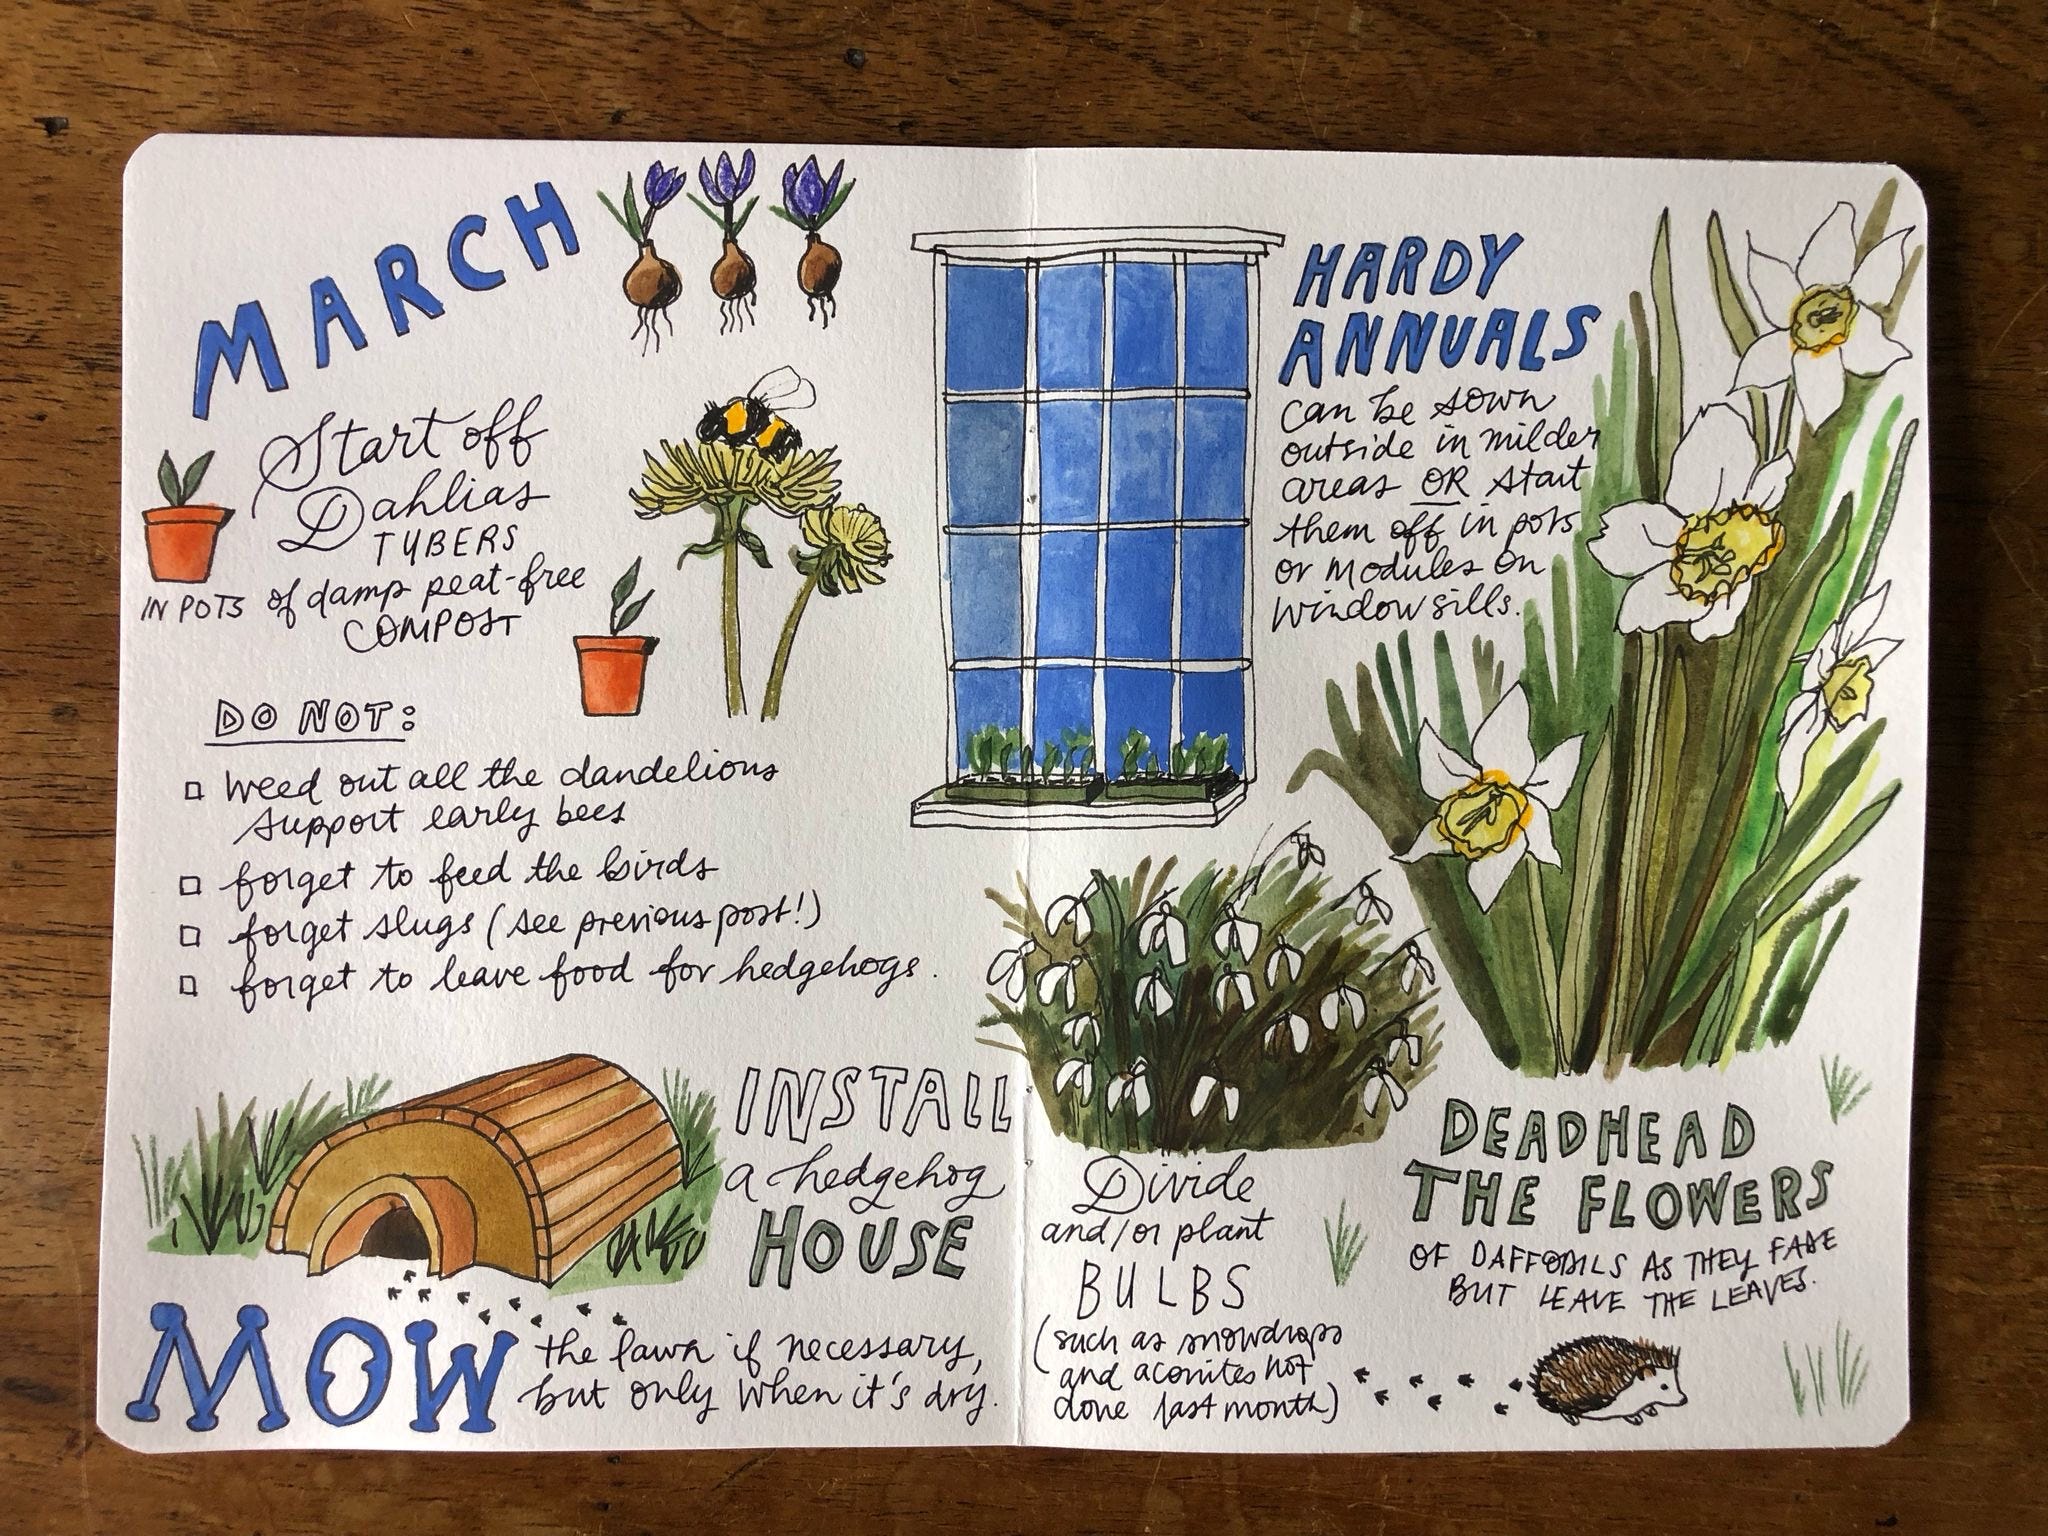 MARCH
Start off
Dahlias
TUBERS
IN POTS of damp peat-free
COMPOST
DO NOT:
weed out all the dandelions
support early bees
forget to feed the birds
forget slugs (see previous post!)
forget to leave food for hedgehogs.
INSTALL
a hedgehog
HOUSE
MOW the lawn if necessary,
but only when it's dry.
HARDY
ANNUALS
can be sown
outside in milder
areas OR start
them off in pots
or modules on
windowsills.
Divide
and/or plant
BULBS
(such as snowdrops
and aconites not
done last month)
DEADHEAD
THE FLOWERS
OF DAFFODILS AS THEY FADE
BUT LEAVE THE LEAVES.